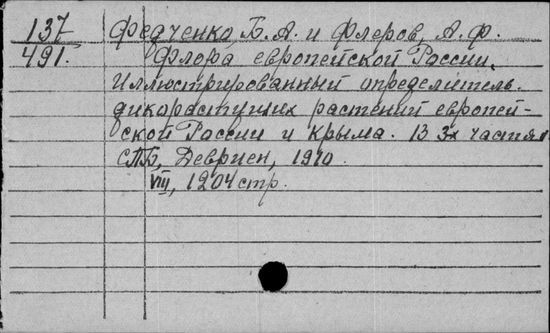 137 Федченко, Б. А. и Флеров, А. Ф.
491. Флора европейской России.
Иллюстрированный определитель
дикорастущих растений европей-
ской России и Крыма. В 3х частях
СПБ, Девриен, 1910.
VIII, 1204 стр.